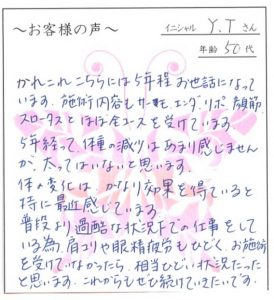 ～お客様の声～
イニシャル Y.T さん
年齢 50代
かれこれこちらには5年程お世話になって
います。施術内容もサーモ、エンダ、リポ、顔筋、
スロータスとほぼ全コースを受けています。
5年経って、体重の減りはあまり感じません
が、太ってはいないと思います。
体の変化は、かなり効果を得ていると
特に最近感じています。
普段より過酷な状況下での仕事をして
いる為、肩コリや眼精疲労もひどく、お施術
を受けていなかったら、相当ひどい状況だった
と思います。これからもぜひ続けていきたいです。